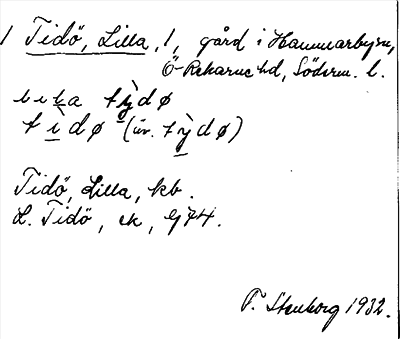 1 Tidö, Lilla, 1, gård i Hammarbyn,
Ö-Rekarne hd, Söderm. l.
lila tỳdø
tìdø (äv. tỳdø)
Tidö, Lilla, kb.
L. Tidö, ek, Gj74.
T. Stenborg 1932.